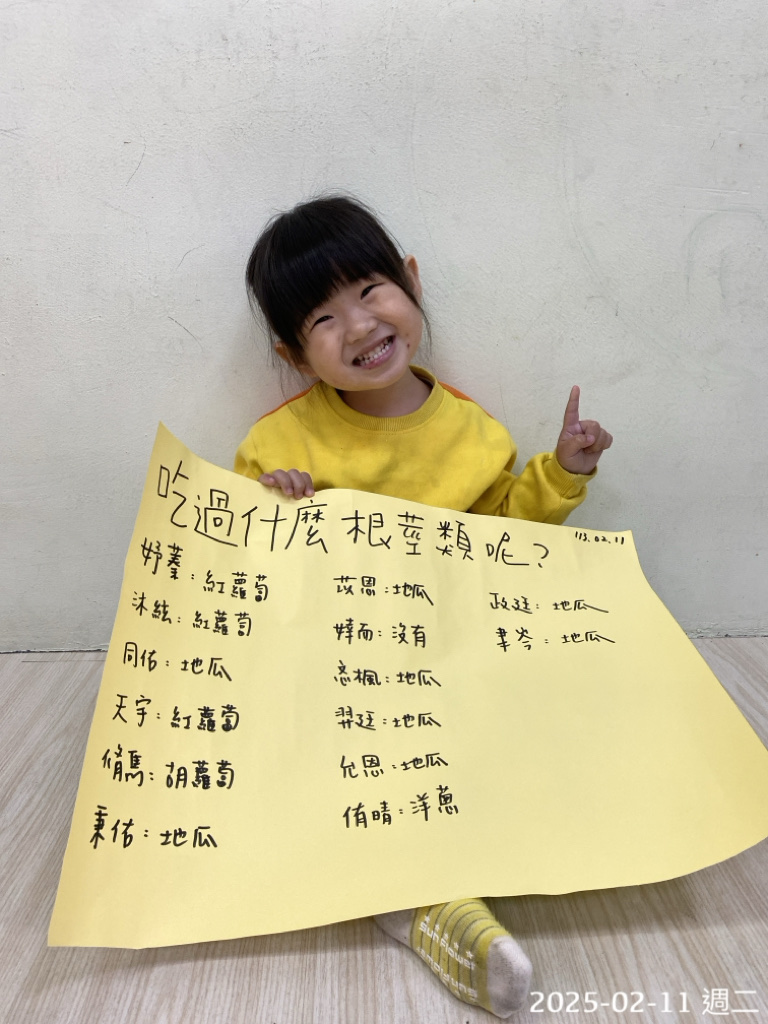 吃過什麼根莖類呢?
113.02.11
妤蓁:紅蘿蔔
沐紘:紅蘿蔔
同佑:地瓜
天宇:紅蘿蔔
脩馬:胡蘿蔔
秉佑:地瓜
苡恩:地瓜
婞而:沒有
忞楓:地瓜
羿廷:地瓜
允恩:地瓜
侑晴:洋蔥
政廷:地瓜
聿岑:地瓜
sunflower
2025-02-11 週二